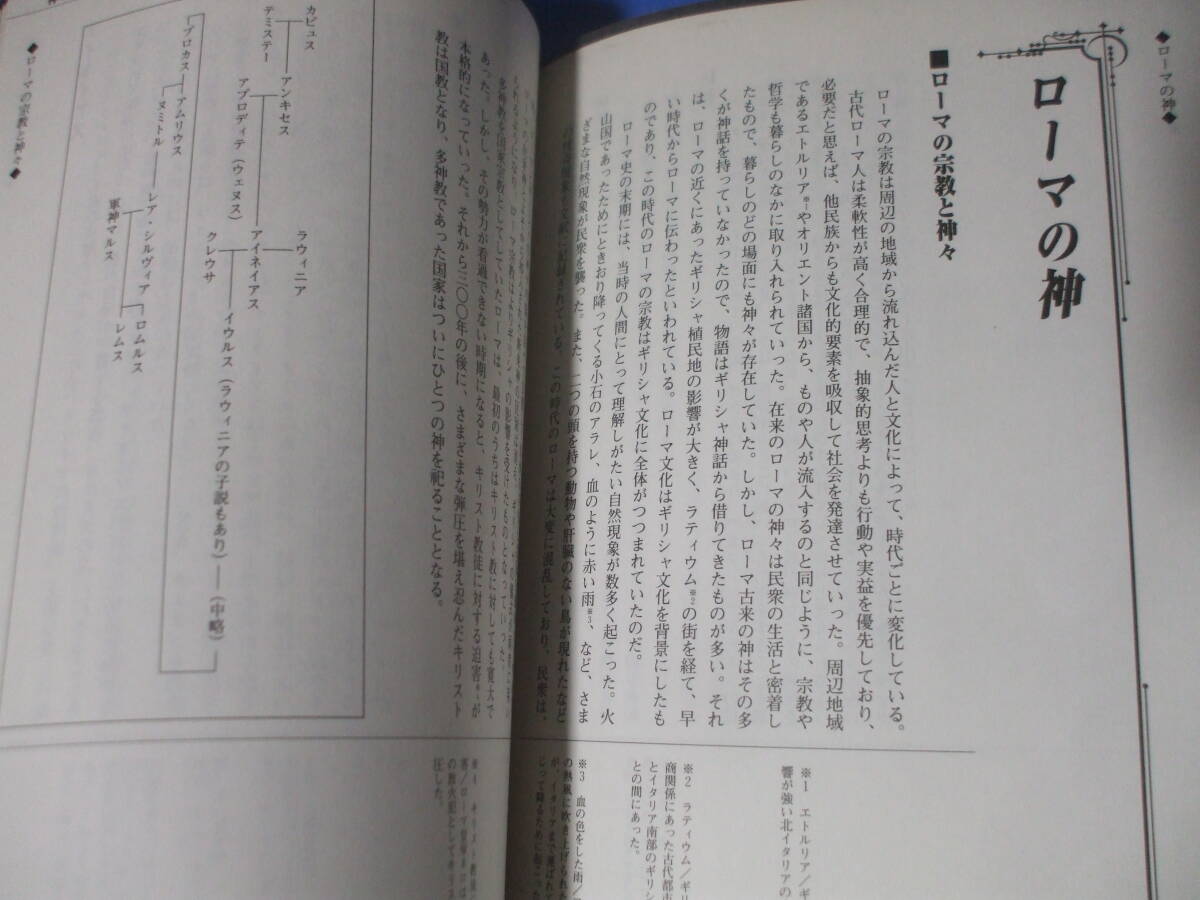 ◆ローマの神◆
ローマの神
■ローマの宗教と神々
ローマの宗教は周辺の地域から流れ込んだ人と文化によって、時代ごとに変化している。
古代ローマ人は柔軟性が高く合理的で、抽象的思考よりも行動や実益を優先しており、
必要だと思えば、他民族からも文化的要素を吸収して社会を発達させていった。周辺地域
であるエトルリア※1やオリエント諸国から、ものや人が流入するのと同じように、宗教や
哲学も暮らしのなかに取り入れられていった。在来のローマの神々は民衆の生活と密着し
たもので、暮らしのどの場面にも神々が存在していた。しかし、ローマ古来の神はその多
くが神話を持っていなかったので、物語はギリシャ神話から借りてきたものが多い。それ
は、ローマの近くにあったギリシャ植民地の影響が大きく、ラティウム※2の街を経て、早
い時代からローマに伝わったといわれている。ローマ文化はギリシャ文化を背景にしたも
のであり、この時代のローマの宗教はギリシャ文化に全体がつつまれていたのだ。
ローマ史の末期には、当時の人間にとって理解しがたい自然現象が数多く起こった。火
山国であったためにときおり降ってくる小石のアラレ、血のように赤い雨※3、など、さま
ざまな自然現象が民衆を襲った。また、二つの頭を持つ動物や肝臓のない鳥が現れたなど
記されている。この時代のローマは大変に混乱しており、民衆は、
※1 エトルリア/ギ
響が強い北イタリアの
※2 ラティウム/ギリ
商関係にあった古代都市
とイタリア南部のギリシ
との間にあった。
※3 血の色をした雨/
の熱風に吹き上げられた
が、イタリアまで運ばれて
じって降るために起こった
の影響を受けたものとなっていった。
多神教を国家宗教としてしていたローマは、最初のうちはキリスト教に対しても寛大で
あった。しかし、その勢力が看過できない時期になると、キリスト教徒に対する迫害※4が
本格的になっていった。それから三〇〇年の後に、さまざまな弾圧を堪え忍んだキリスト
教は国教となり、多神教であった国家はついにひとつの神を祀ることとなる。
圧した。
カピュス
テミステー
アンキセス
アプロディテ(ウェヌス)
ラウィニア
アイネイアス
クレウサ
イウルス(ラウィニアの子説もあり)
(中略)
プロカス
アムリウス
ヌミトル
レア・シルヴィア
軍神マルス
ロムルス
レムス
◆ローマの宗教と神々◆